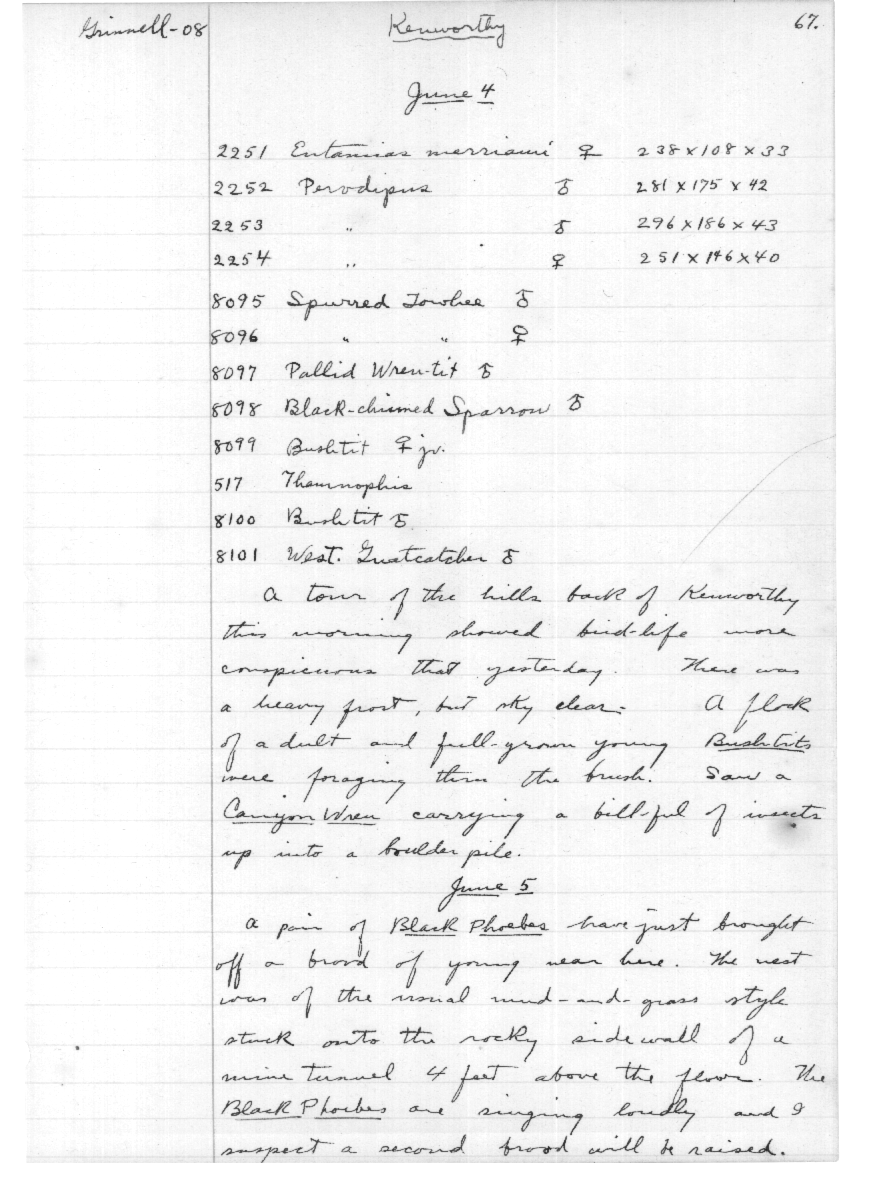 Grinnell-08
Kenworthy
67.
June 4
2251 Eutamias merriami ♀ 238 x 108 x 33
2252 Perodipus ♂ 281 x 175 x 42
2253 " ♂ 296 x 186 x 43
2254 " ♀ 251 x 146 x 40
8095 Spurred Towhee ♂
8096 " " ♀
8097 Pallid Wren-tit ♂
8098 Black-chinned Sparrow ♂
8099 Bushtit ♀ jv.
517 Thamnophis
8100 Bushtit ♂
8101 West. Gnatcatcher ♂
A tour of the hills back of Kenworthy
this morning showed bird-life more
conspicuous that yesterday. There was
a heavy frost, but sky clear. A flock
of adult and full-grown young Bushtits
were foraging thru the brush. Saw a
Canyon Wren carrying a bill-ful of insects
up into a boulder pile.
June 5
A pair of Black Phoebes have just brought
off a brood of young near here. The nest
was of the usual mud-and-grass style
stuck onto the rocky side wall of a
mine tunnel 4 feet above the floor. The
Black Phoebes are singing loudly and I
suspect a second brood will be raised.